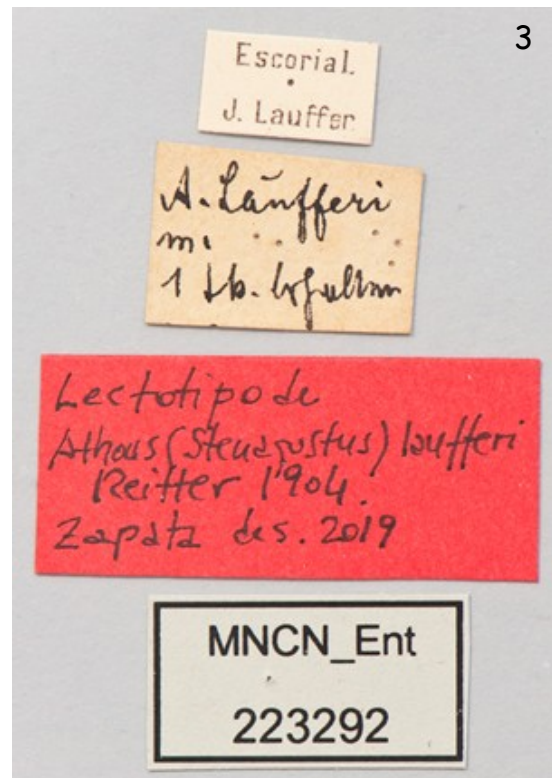 3
Escorial.
J. Lauffer
A. Läufferi
m.
1 Stk. behalten
Lectotipo de
Athous (Stenagostus) laufferi
Reitter 1904.
Zapata des. 2019
MNCN_Ent
223292